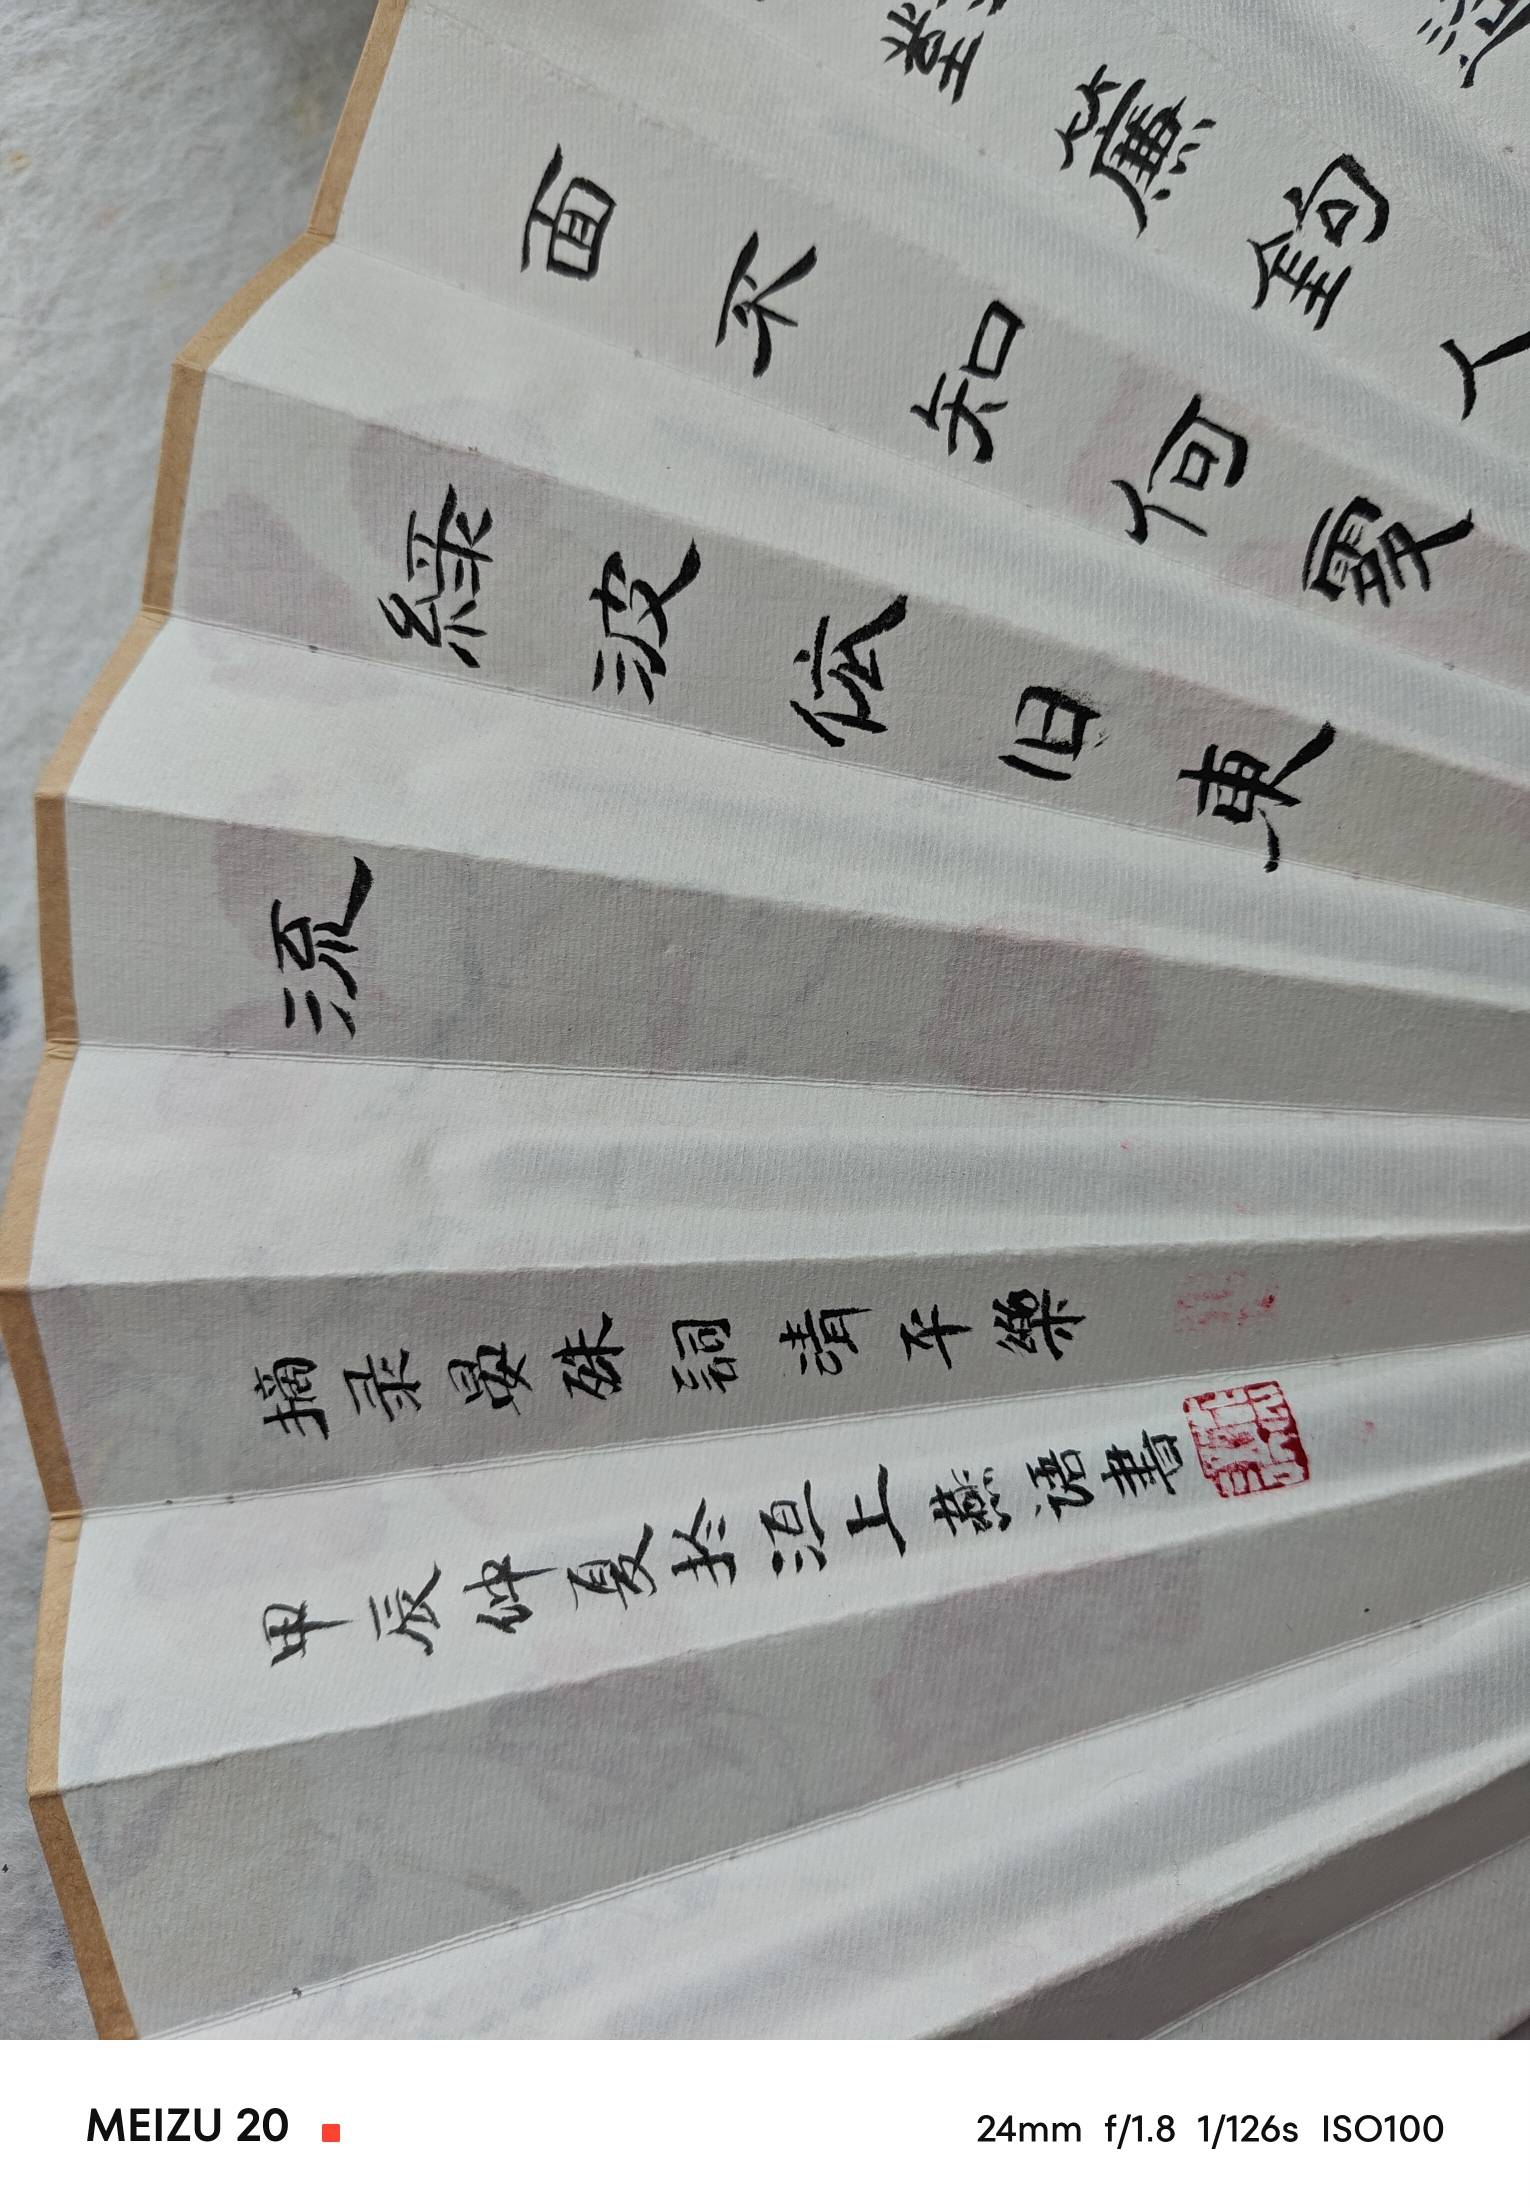 簾鉤人
面不知何處
綠波依旧東
流
摘录晏殊詞清平樂
甲辰仲夏於洹上燕语書
MEIZU 20
24mm f/1.8 1/126s ISO100